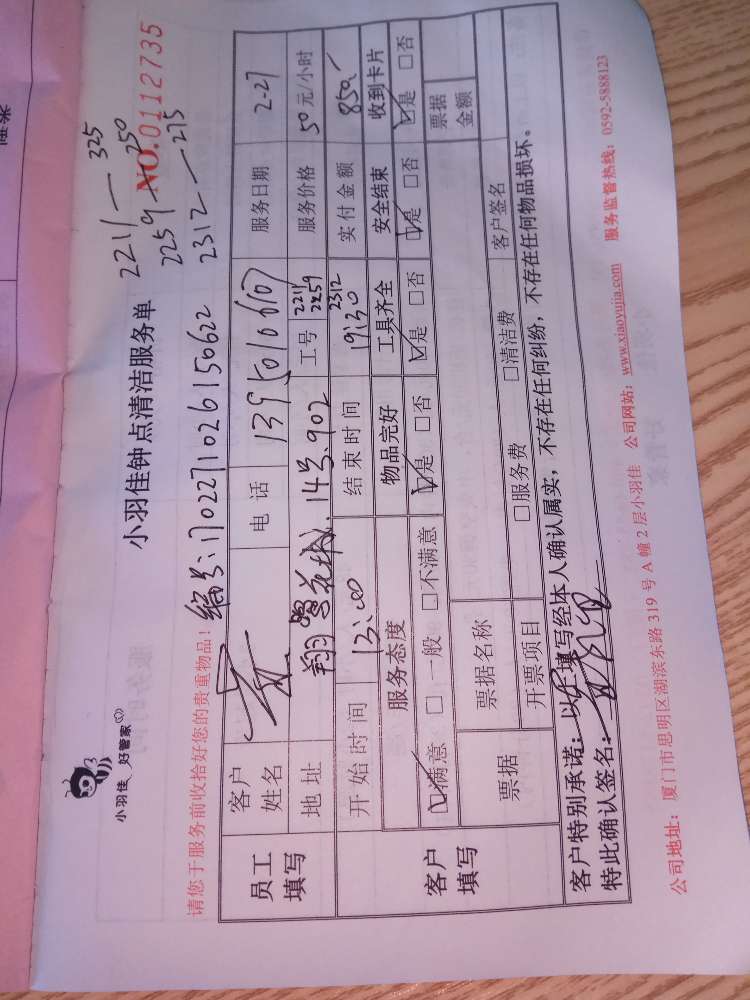 小羽佳 好管家
小羽佳钟点清洁服务单
NO.0112735
2211 — 325
2259 — 250
2312 — 275
请您于服务前收拾好您的贵重物品!
编号:170227102615062 2
员工填写
客户姓名
电话 13950101
服务日期 2-27
地址 翔鹭花城. 14号.902
工号 2211 2259 2312
服务价格 50元/小时
客户填写
开始时间 13:00
结束时间 19:30
实付金额 850.-
服务态度 物品完好 工具齐全 安全结束 收到卡片
☑满意 □一般 □不满意 ☑是 □否 ☑是 □否 ☑是 □否 ☑是 □否
票据
票据名称
票据金额
开票项目 □服务费 □清洁费
客户签名
客户特别承诺:以上填写经本人确认属实,不存在任何纠纷,不存在任何物品损坏。
特此确认签名:
公司地址:厦门市思明区湖滨东路 319 号 A 幢 2 层小羽佳 公司网站:www.xiaoyujia.com 服务监督热线:0592-5888123